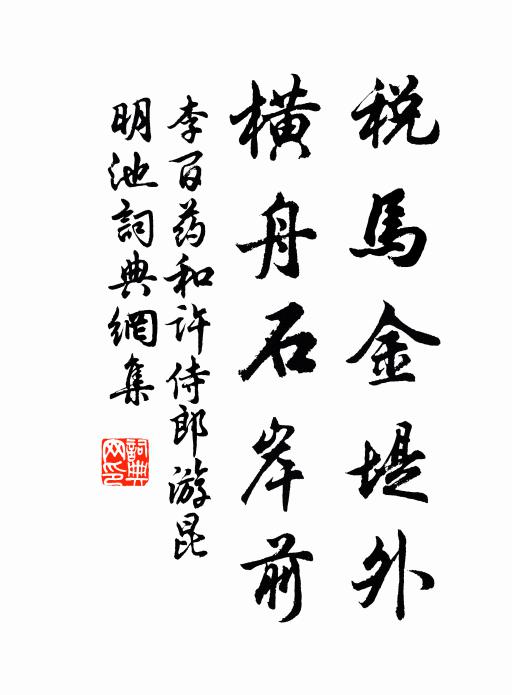 税馬金堤外
橫舟石岸前
李百药和許侍郎游昆
明池詞典網集
詞典网印